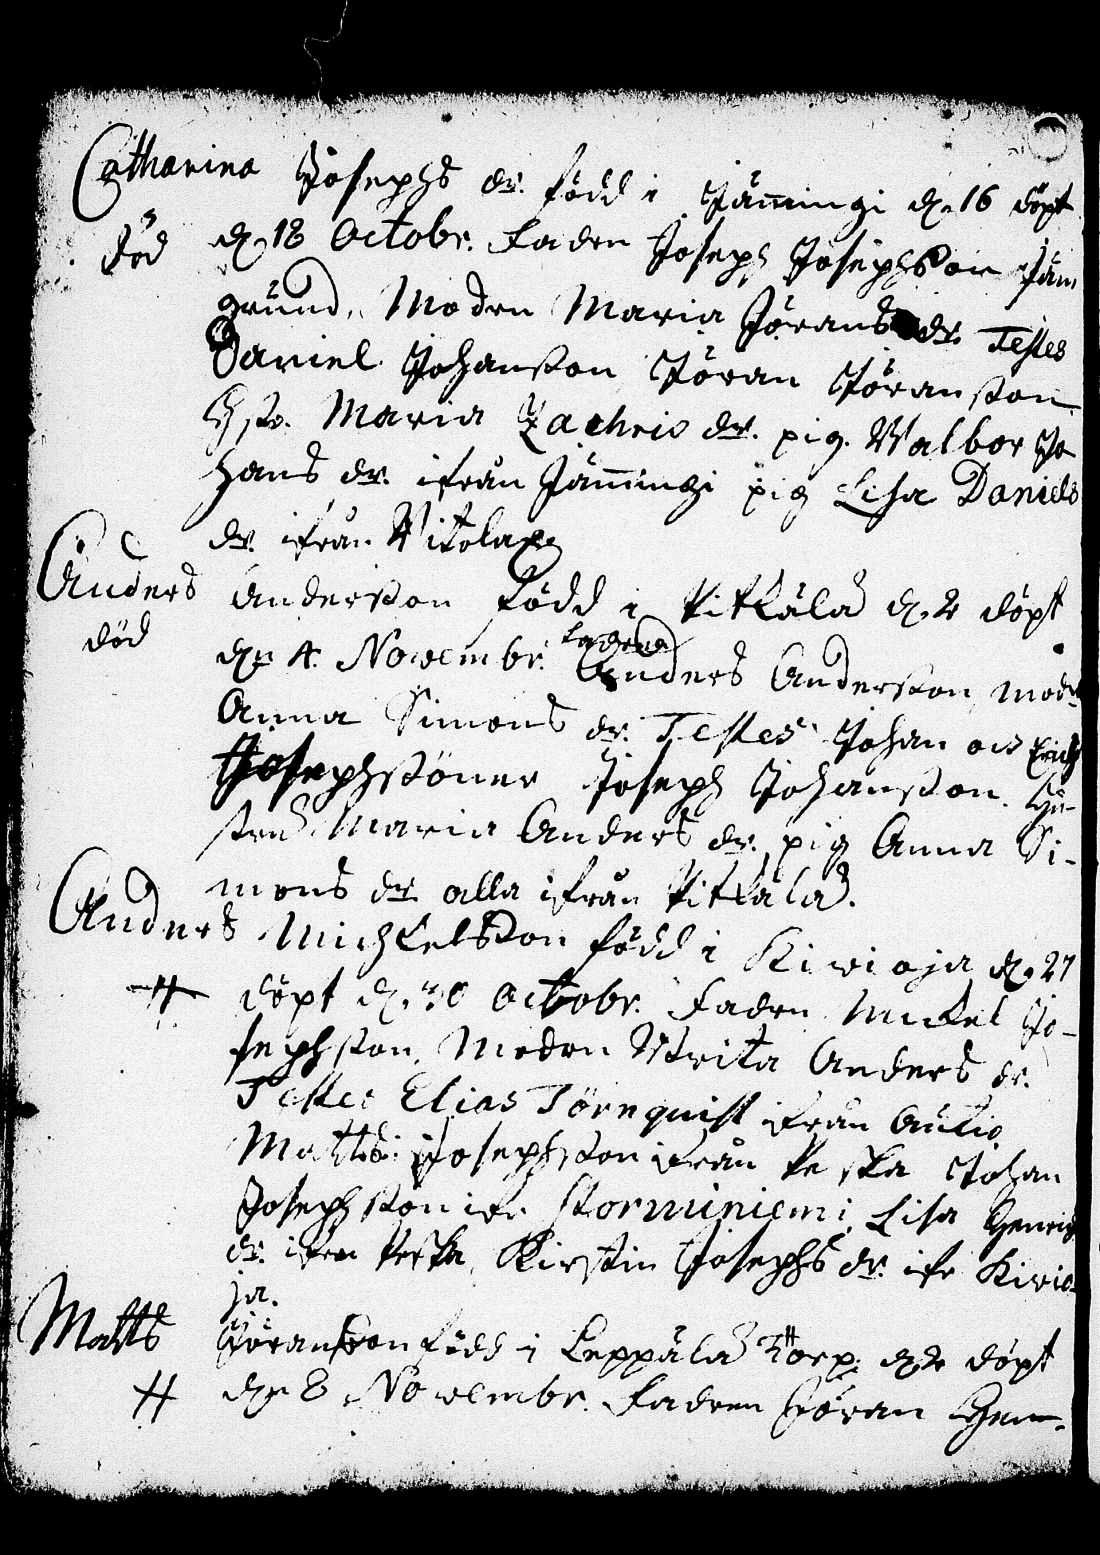 Catharina Josephs dr. född i Jämingi d. 16 döpt
död d. 18 Octobr. Fadren Joseph Josephsson Jäm
grund, Modren Maria Jörans dr. Testes
Daniel Johansson Jöran Jöransson
Hstr. Maria Zachris dr. pig. Walbor Jo
hans dr. ifrån Jämingi pig Lisa Daniels
dr. ifrån Witolax
Anders Andersson född i Pitkälä d. 2 döpt
död den 4. Novembr. Fadren Anders Andersson, modr
Anna Simons dr. Testes Johan och Erich
Josephssöner Joseph Johansson. Hu-
strun Maria Anders dr. pig Anna Si-
mons dr alla ifrån Pitkälä.
Anders Michkelsson född i Kiwioja d. 27
# döpt d. 30 Octobr. Fadren Mickel Jo-
sephsson, Modren Anders dr.
Testes Elias Törnquist ifrån Autio
Matts Josephsson ifrån Peska Johan
Josephsson ifr. Storminiemi, Lisa Henrichs
dr. ifrån Peska, Kirstin Josephs dr. ifr Kiwio-
ja.
Matts Jöransson född i Leppälä Torp. d. 2 döpt
# den 8 Novembr. Fadren Jöran Hen-